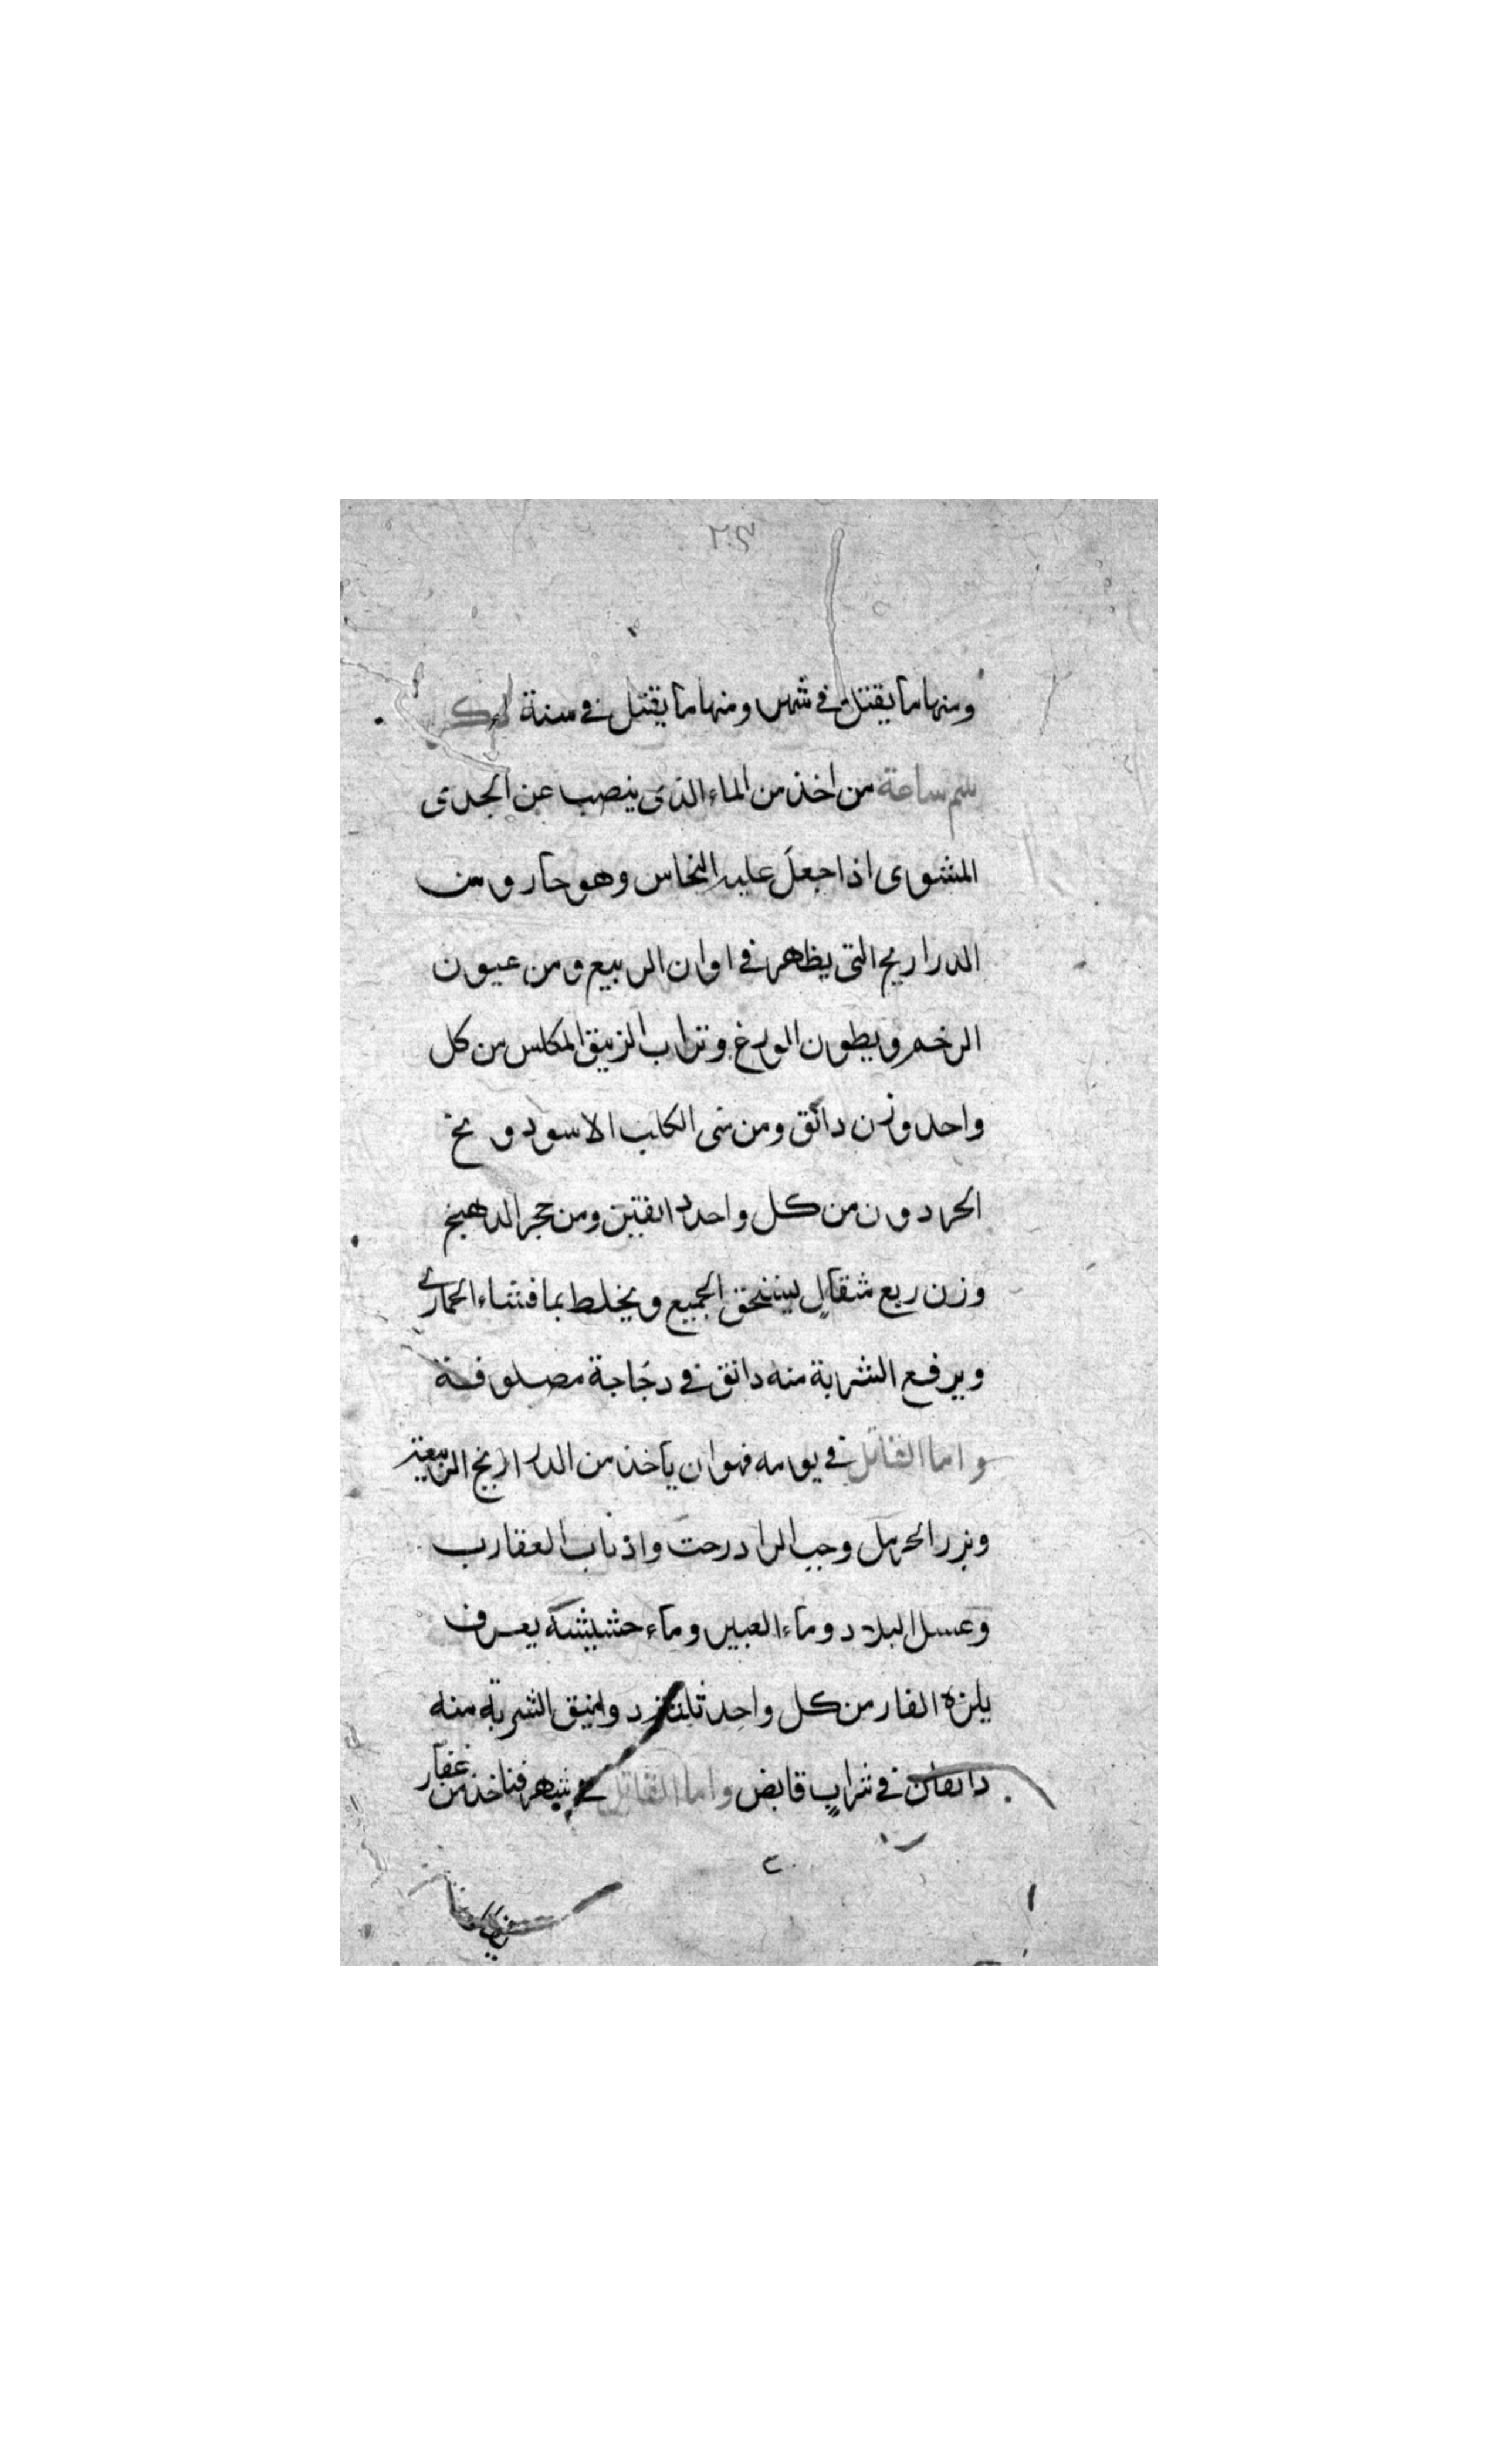 ومنها ما يقتل في شهر ومنها ما يقتل في سنة
سم ساعة من اخذ من الماء الذى ينصب عن الجدى
المشوى اذا جعل عليه النحاس وهو حار ومن
الدراريح التى يظهر فى اوان الربيع ومن عيون
الرخم وبطون الوزغ وتراب الزيبق المكلس من كل
واحد وزن دانق ومن منى الكلب الاسود و مخ
الحردون من كل واحد دانقين ومن حجر الدهنج
وزن ربع مثقال يسحق الجميع ويخلط بما قثاء الحمار
ويرفع الشربة منه دانق فى دجاجة مصلوقة
واما القاتل فى يومه فهو ان ياخذ من الدراريح
وبزر الحرمل وحب الرادرحت واذناب العقارب
وعسل البلادر وماء العبير وماء حشيشة يعرف
من كل واحد الشربة منه
دانقان فى شراب قابض واما القاتل فى شهر فتاخذ من